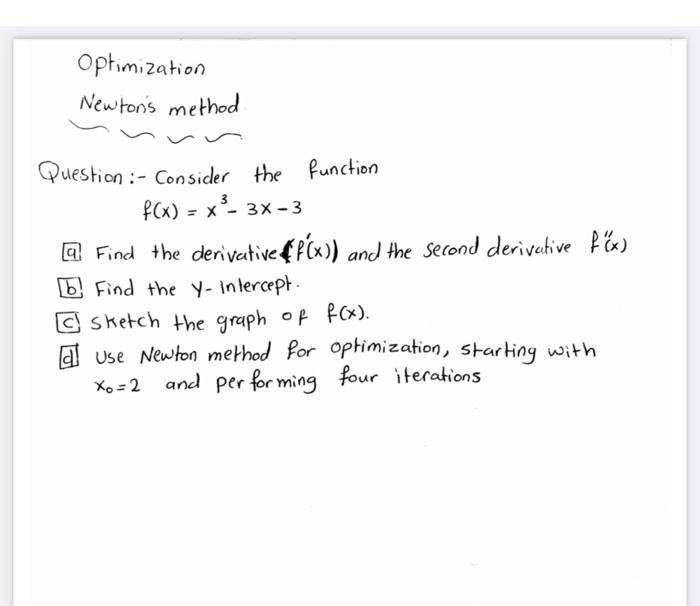 Optimization
Newton's method
Question :- Consider the function
f(x) = x³ - 3x - 3
a Find the derivative (f'(x)) and the second derivative f"(x)
b Find the y-intercept.
c Sketch the graph of f(x).
d Use Newton method for optimization, starting with
x₀ = 2 and performing four iterations